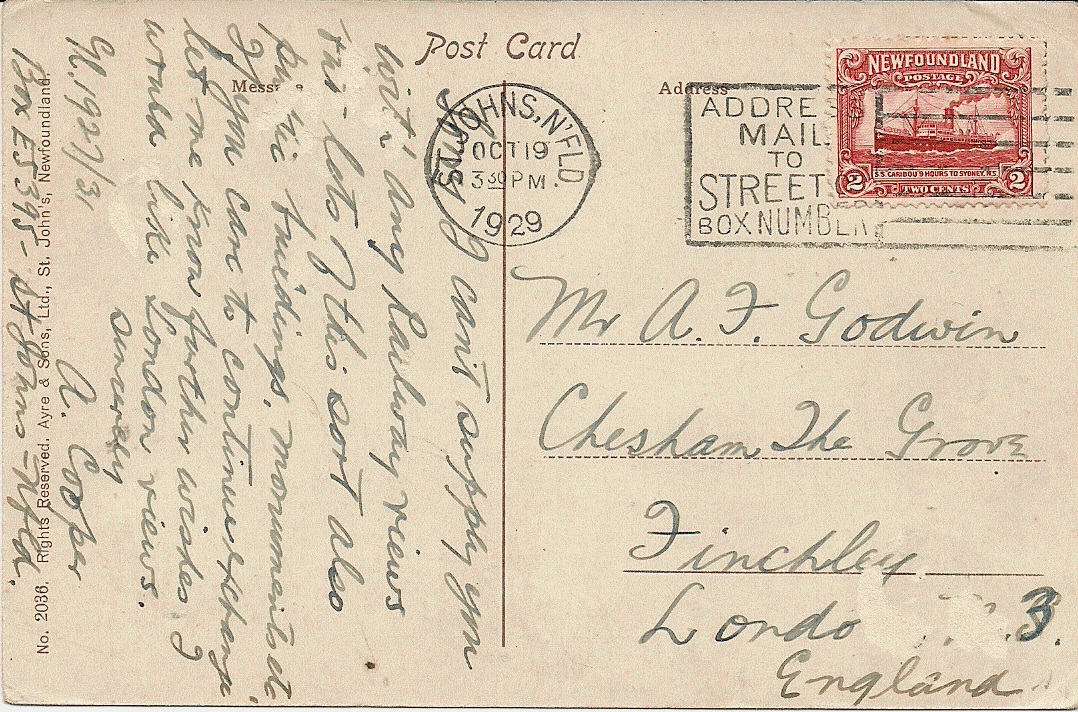 Post Card
Message
Address
ST. JOHNS, N'FLD
OCT 19
3 30 PM
1929
ADDRESS
MAIL
TO
STREET
BOX NUMBER
NEWFOUNDLAND
POSTAGE
S.S. CARIBOU 9 HOURS TO SYDNEY, N.S.
2 TWO CENTS 2
Mr A. F. Godwin
Chesham The Grove
Finchley
Londo 3.
England.
I can't supply you
with any Railway views
this - lots of this sort also
public buildings, monuments etc
If you care to continue exchange
let me know further wishes I
would like London views.
sincerely
A. Cooper
1927/31
Box E5395 - St Johns - Nfld.
No. 2036. Rights Reserved. Ayre & Sons, Ltd., St. John's, Newfoundland.